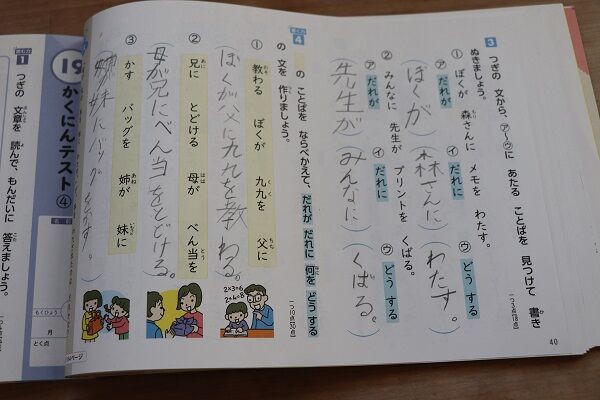 3 つぎの 文から、㋐〜㋒に あたる ことばを 見つけて 書き
ぬきましょう。
一つ3点(18点)
① ぼくが 森さんに メモを わたす。
㋐ だれが ㋑ だれに ㋒ どう する
(ぼくが)(森さんに)(わたす。)
② みんなに 先生が プリントを くばる。
㋐ だれが ㋑ だれに ㋒ どう する
(先生が)(みんなに)(くばる。)
4 の ことばを ならべかえて、だれが だれに 何を どう する
の 文を 作りましょう。
一つ10点(30点)
① 教わる ぼくが 九九を 父に
(ぼくが父に九九を教わる。)
② 兄に とどける 母が べん当を
(母が兄にべん当をとどける。)
③ かす バッグを 姉が 妹に
2×3=6
2×4=8
40
19 かくにんテスト④
1 つぎの 文章を 読んで、もんだいに 答えましょう。
名前
もくひょう
月
とく点